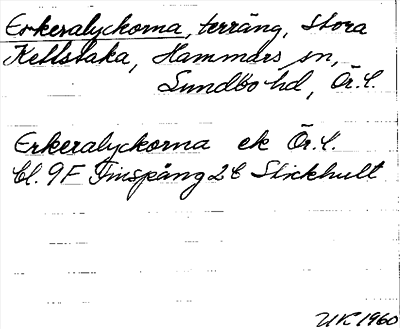 Erkeralyckorna, terräng, Stora
Kettstaka, Hammars sn,
Sundbo hd, Ör.l.
Erkeralyckorna ek Ör.l.
bl. 9F Finspång 2e Stickhult
UK 1960